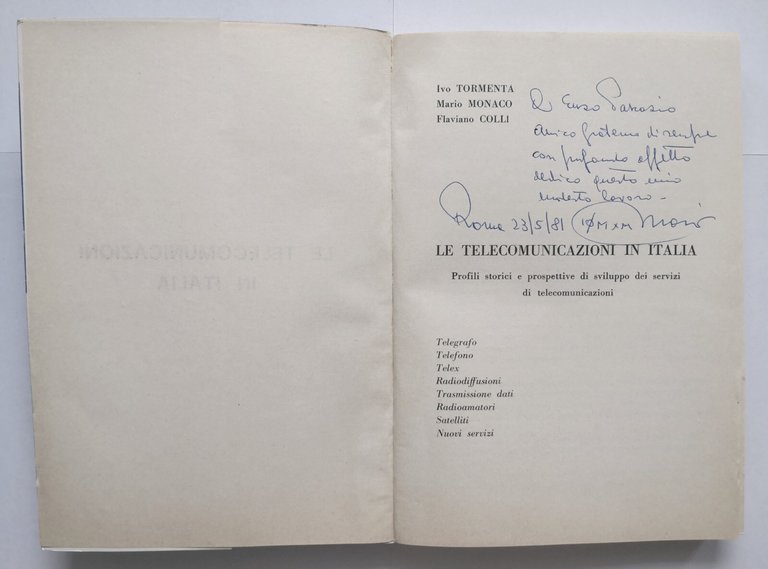 LE TELECOMUNICAZIONI
IN ITALIA
Ivo TORMENTA
Mario MONACO
Flaviano COLLI
Enzo
amico fraterno di sempre
con profondo affetto
dedico questo mio
modesto lavoro -
Roma 23/5/81 Mario
LE TELECOMUNICAZIONI IN ITALIA
Profili storici e prospettive di sviluppo dei servizi
di telecomunicazioni
Telegrafo
Telefono
Telex
Radiodiffusioni
Trasmissione dati
Radioamatori
Satelliti
Nuovi servizi